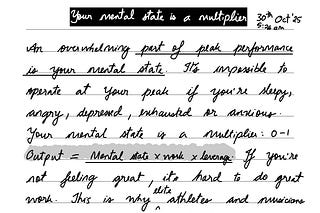 Your mental state is a multiplier 30th Oct'25
5:26 am
An overwhelming part of peak performance
is your mental state. It's impossible to
operate at your peak if you're sleepy,
angry, depressed, exhausted or anxious.
Your mental state is a multiplier: 0-1
Output = Mental state x work x leverage. If you're
not feeling great, it's hard to do great
work. This is why elite athletes and musicians